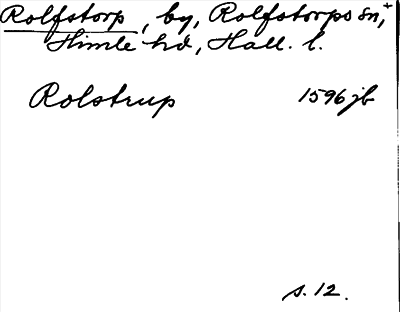 Rolfstorp, by, Rolfstorps sn, +
Himle hd, Hall. l.
Rolstrup 1596 jb
s. 12.